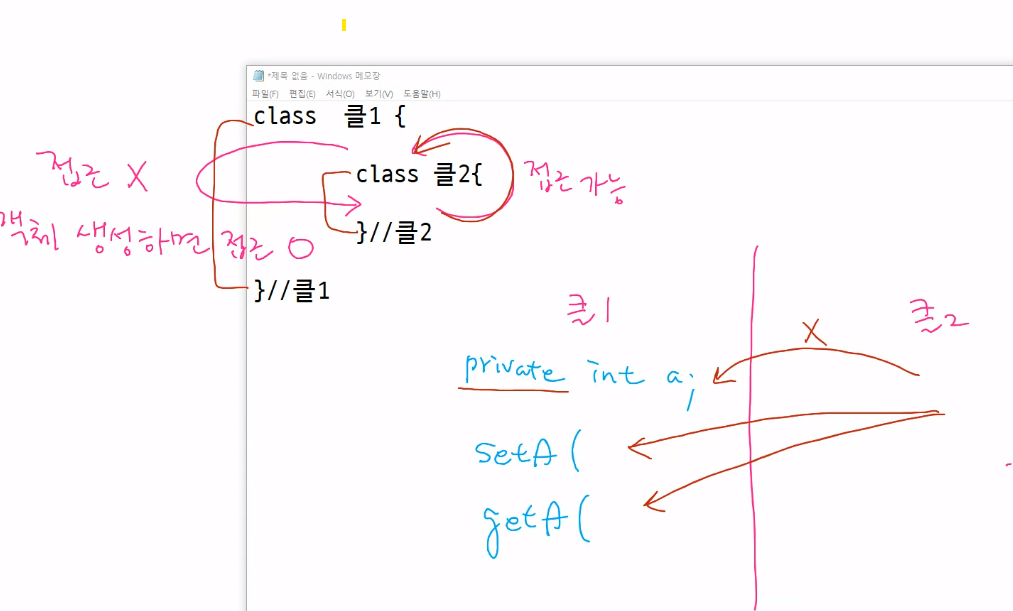 *제목 없음 - Windows 메모장
파일(F) 편집(E) 서식(O) 보기(V) 도움말(H)
class 클1 {
접근 X
class 클2{
접근 가능
객체 생성하면 접근 O
}//클2
}//클1
클1
클2
X
private int a;
setA (
getA (